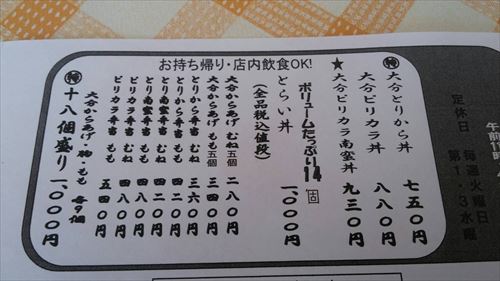 お持ち帰り・店内飲食OK!
㊕大分とりから丼 七五〇円
大分ピリカラ丼 八八〇円
★大分ピリカラ南蛮丼 九三〇円
ボリュームたっぷり14個
とらい丼 一、〇〇〇円
(全品税込値段)
大分からあげ むね 五個 二八〇円
大分からあげ もも 五個 三四〇円
とりから弁当 むね 三六〇円
とりから弁当 もも 四二〇円
とり南蛮弁当 むね 四二〇円
とり南蛮弁当 もも 四八〇円
ピリカラ弁当 むね 四八〇円
ピリカラ弁当 もも 五四〇円
大分からあげ・胸・もも 各9個
㊕十八個盛り 一、〇〇〇円
定休日 毎週火曜日
第1・3水曜